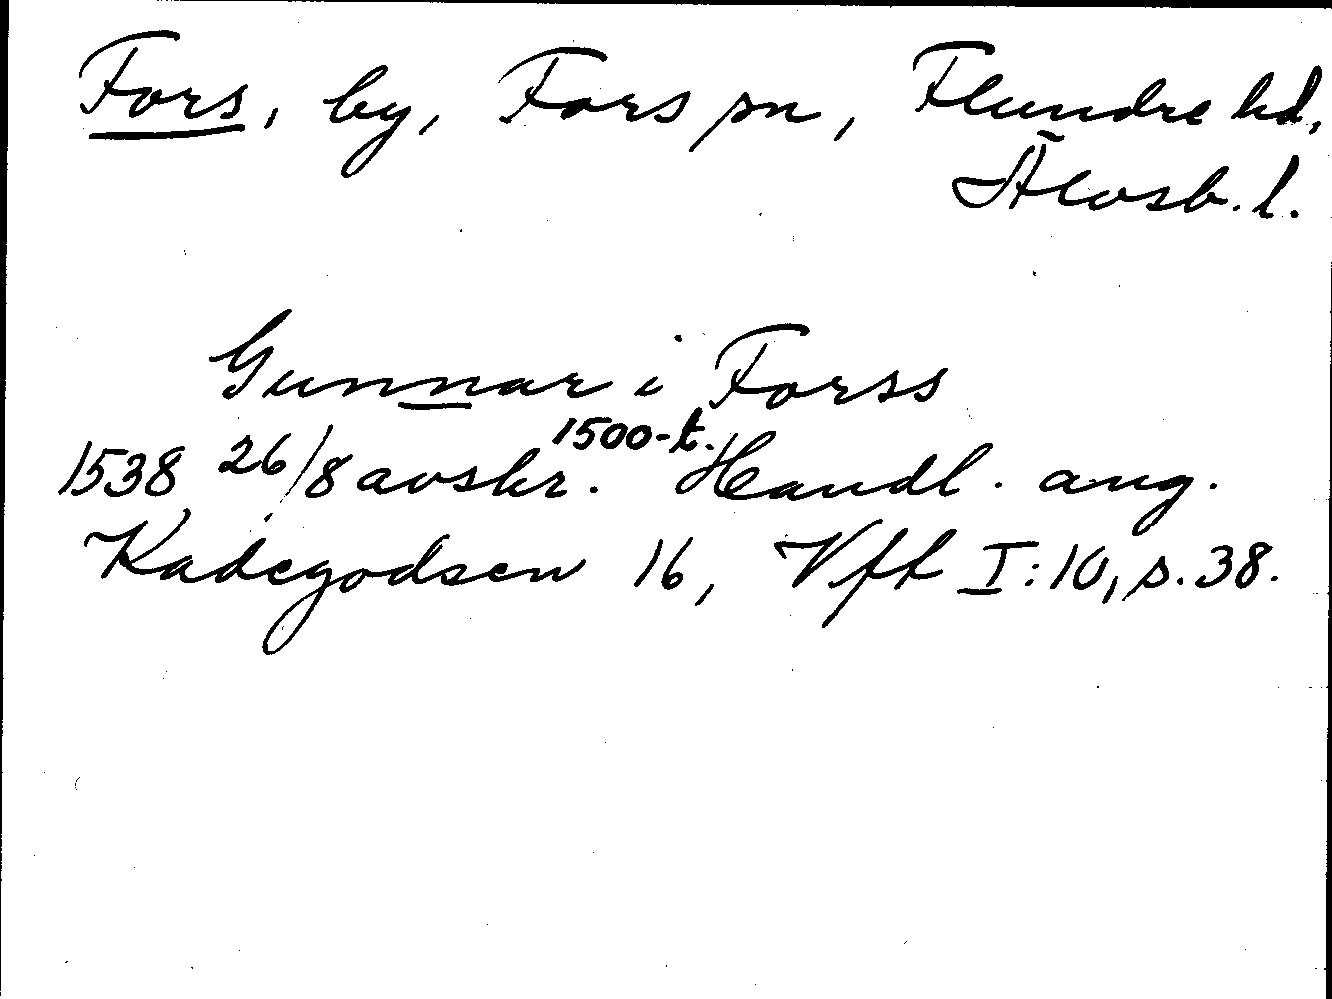 Fors, by, Fors sn, Flundre hd,
Älvsb. l.
Gunnar i Forss
1538 26/8 avskr. 1500-t. Handl. ang.
Kadegodsen 16, Vff I:10, s. 38.